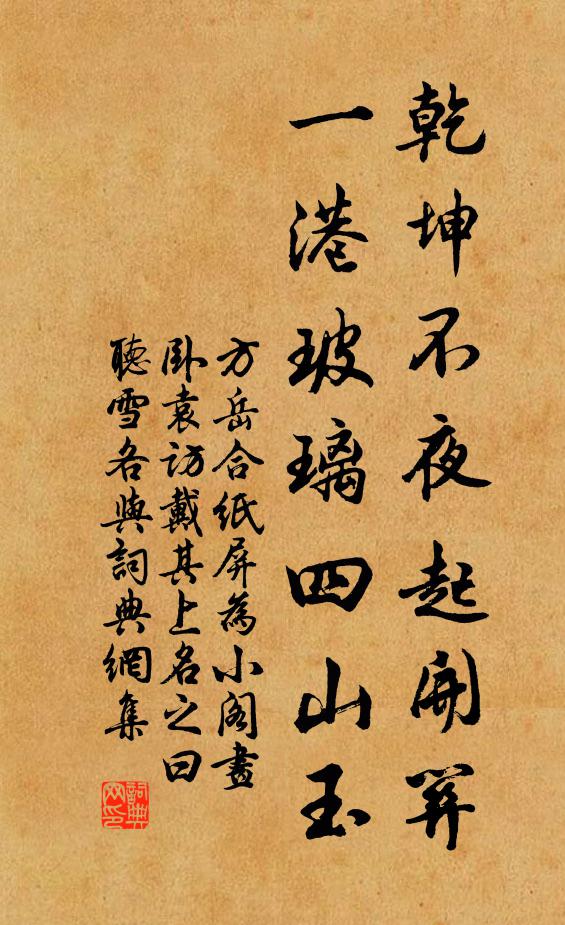 乾坤不夜起開
一港玻璃四山玉
方岳合紙屏為小閣畫
卧袁訪戴其上名之曰
聽雪各與詞典網集
詞典网印